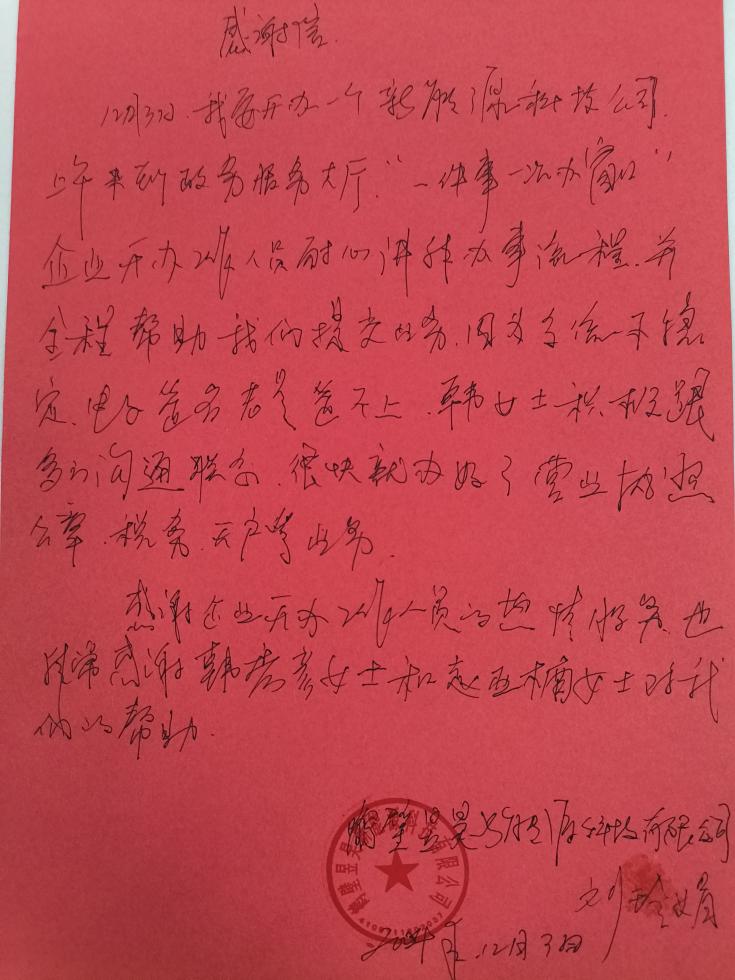 感谢信
12月3日，我要开办一个新能源科技公司，
上午来到政务服务大厅“一件事一次办窗口”
企业开办工作人员耐心讲解办事流程，并
全程帮助我们提交业务，因为系统不稳
定、电子签名老是签不上，韩女士积极跟
多方沟通联系，很快就办好了营业执照
公章、税务、开户等业务。
感谢企业开办工作人员的热情服务，也
非常感谢韩女士和女士对我
们的帮助。
鹤壁昱昊新能源科技有限公司
刘玲娟
2024年12月3日
鹤壁昱昊新能源科技有限公司